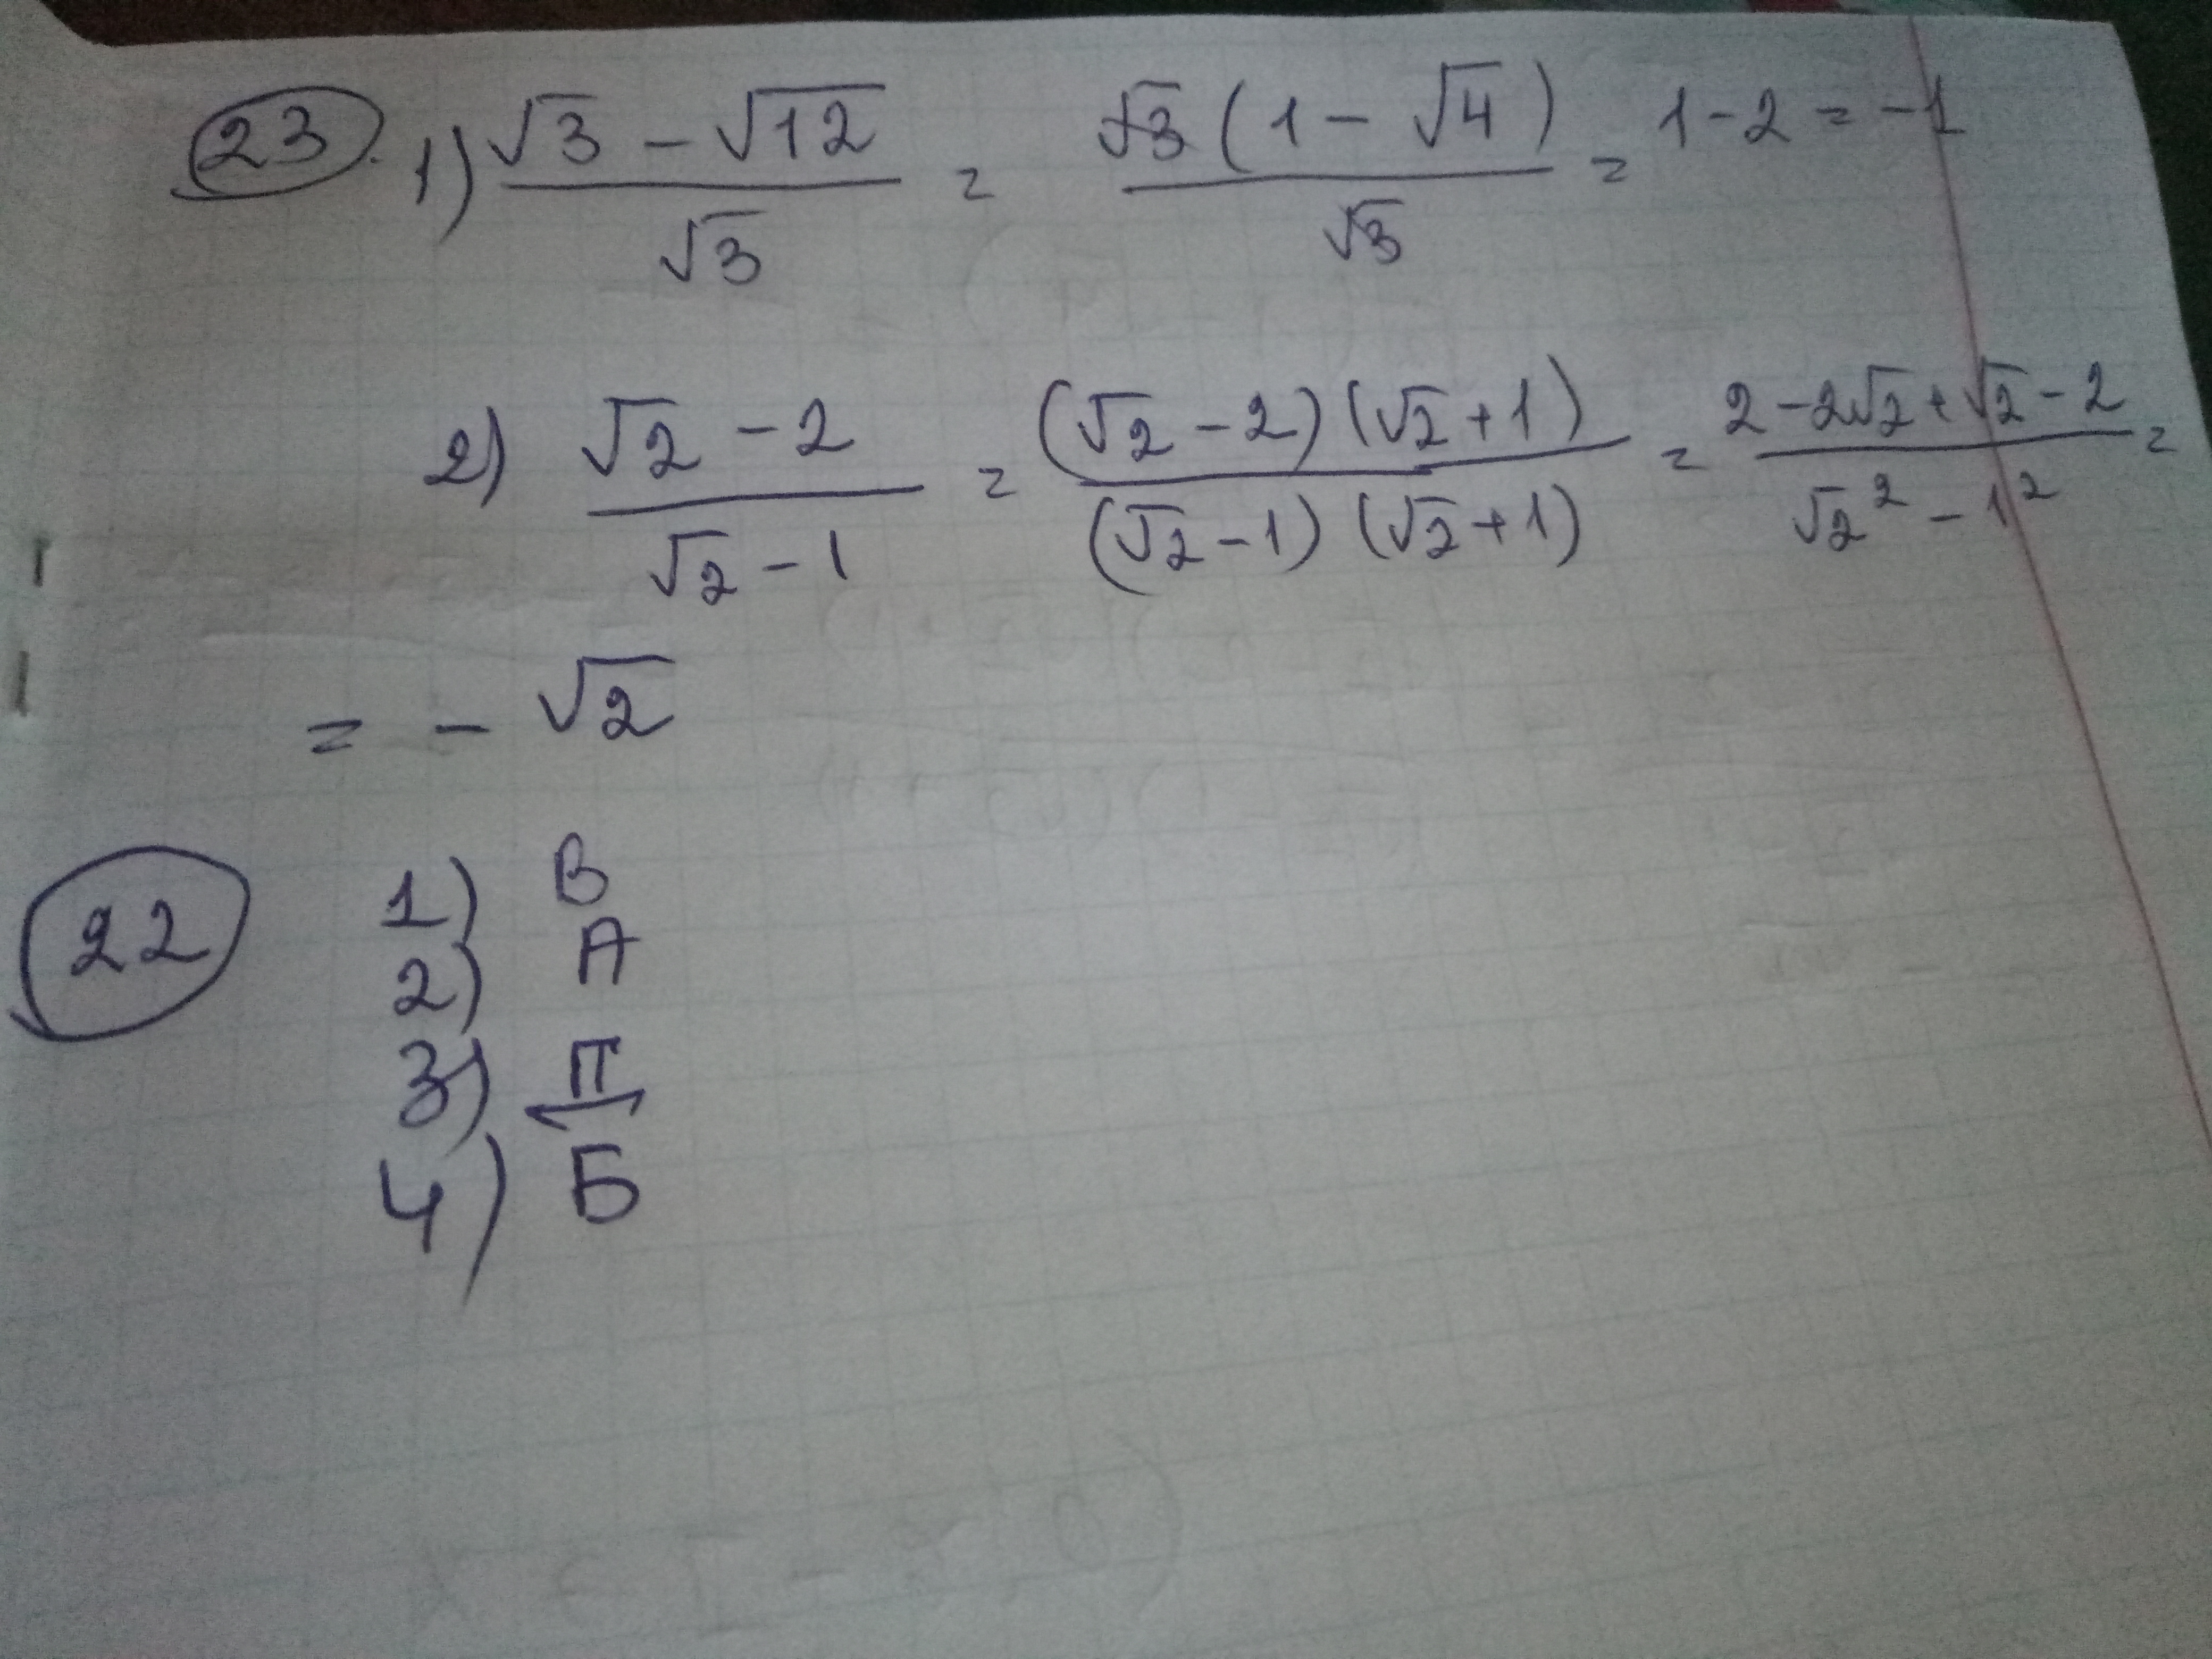 23. 1) (√3 − √12)/√3 = √3(1 − √4)/√3 = 1 − 2 = −1
2) (√2 − 2)/(√2 − 1) = (√2 − 2)(√2 + 1)/(√2 − 1)(√2 + 1) = (2 − 2√2 + √2 − 2)/(√2² − 1²) =
= − √2
22 1) В
2) А
3) Д
4) Б